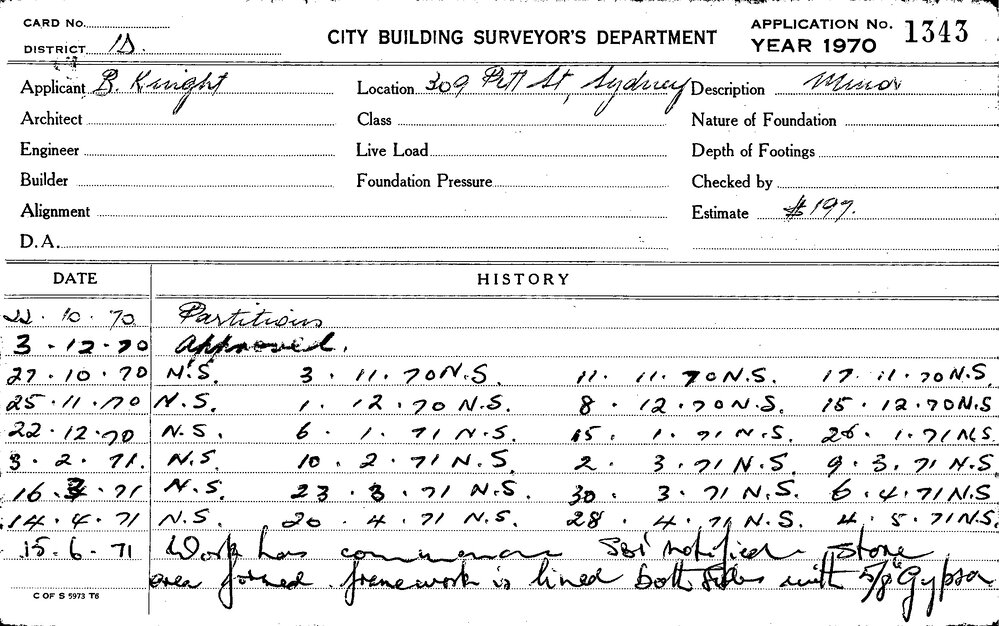 CARD No.
DISTRICT 1D.
CITY BUILDING SURVEYOR'S DEPARTMENT
APPLICATION No. 1343
YEAR 1970
Applicant B. Knight Location 309 Pitt St, Sydney Description Minor
Architect Class Nature of Foundation
Engineer Live Load Depth of Footings
Builder Foundation Pressure Checked by
Alignment Estimate $197.
D.A.
DATE HISTORY
22.10.70 Partitions
3.12.70 Approved.
27.10.70 N.S. 3.11.70 N.S. 11.11.70 N.S. 17.11.70 N.S.
25.11.70 N.S. 1.12.70 N.S. 8.12.70 N.S. 15.12.70 N.S
22.12.70 N.S. 6.1.71 N.S. 15.1.71 N.S. 26.1.71 N.S.
3.2.71. N.S. 10.2.71 N.S. 2.3.71 N.S. 9.3.71 N.S.
16.3.71 N.S. 23.3.71 N.S. 30.3.71 N.S. 6.4.71 N.S
14.4.71 N.S. 20.4.71 N.S. 28.4.71 N.S. 4.5.71 N.S.
15.6.71 Work has notified Store
area formed. framework is lined both sides with 5/8" Gypsm
C OF S 5973 T6